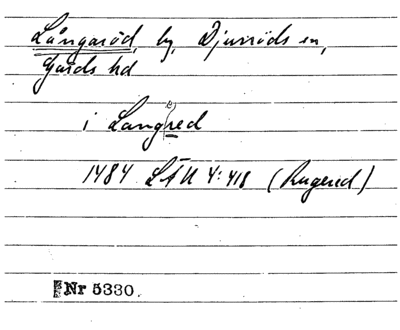 Långaröd, by, Djurröds sn,
Gärds hd
i Langred
1484 LÄU 4:418 (Rugered)
Nr 5330.